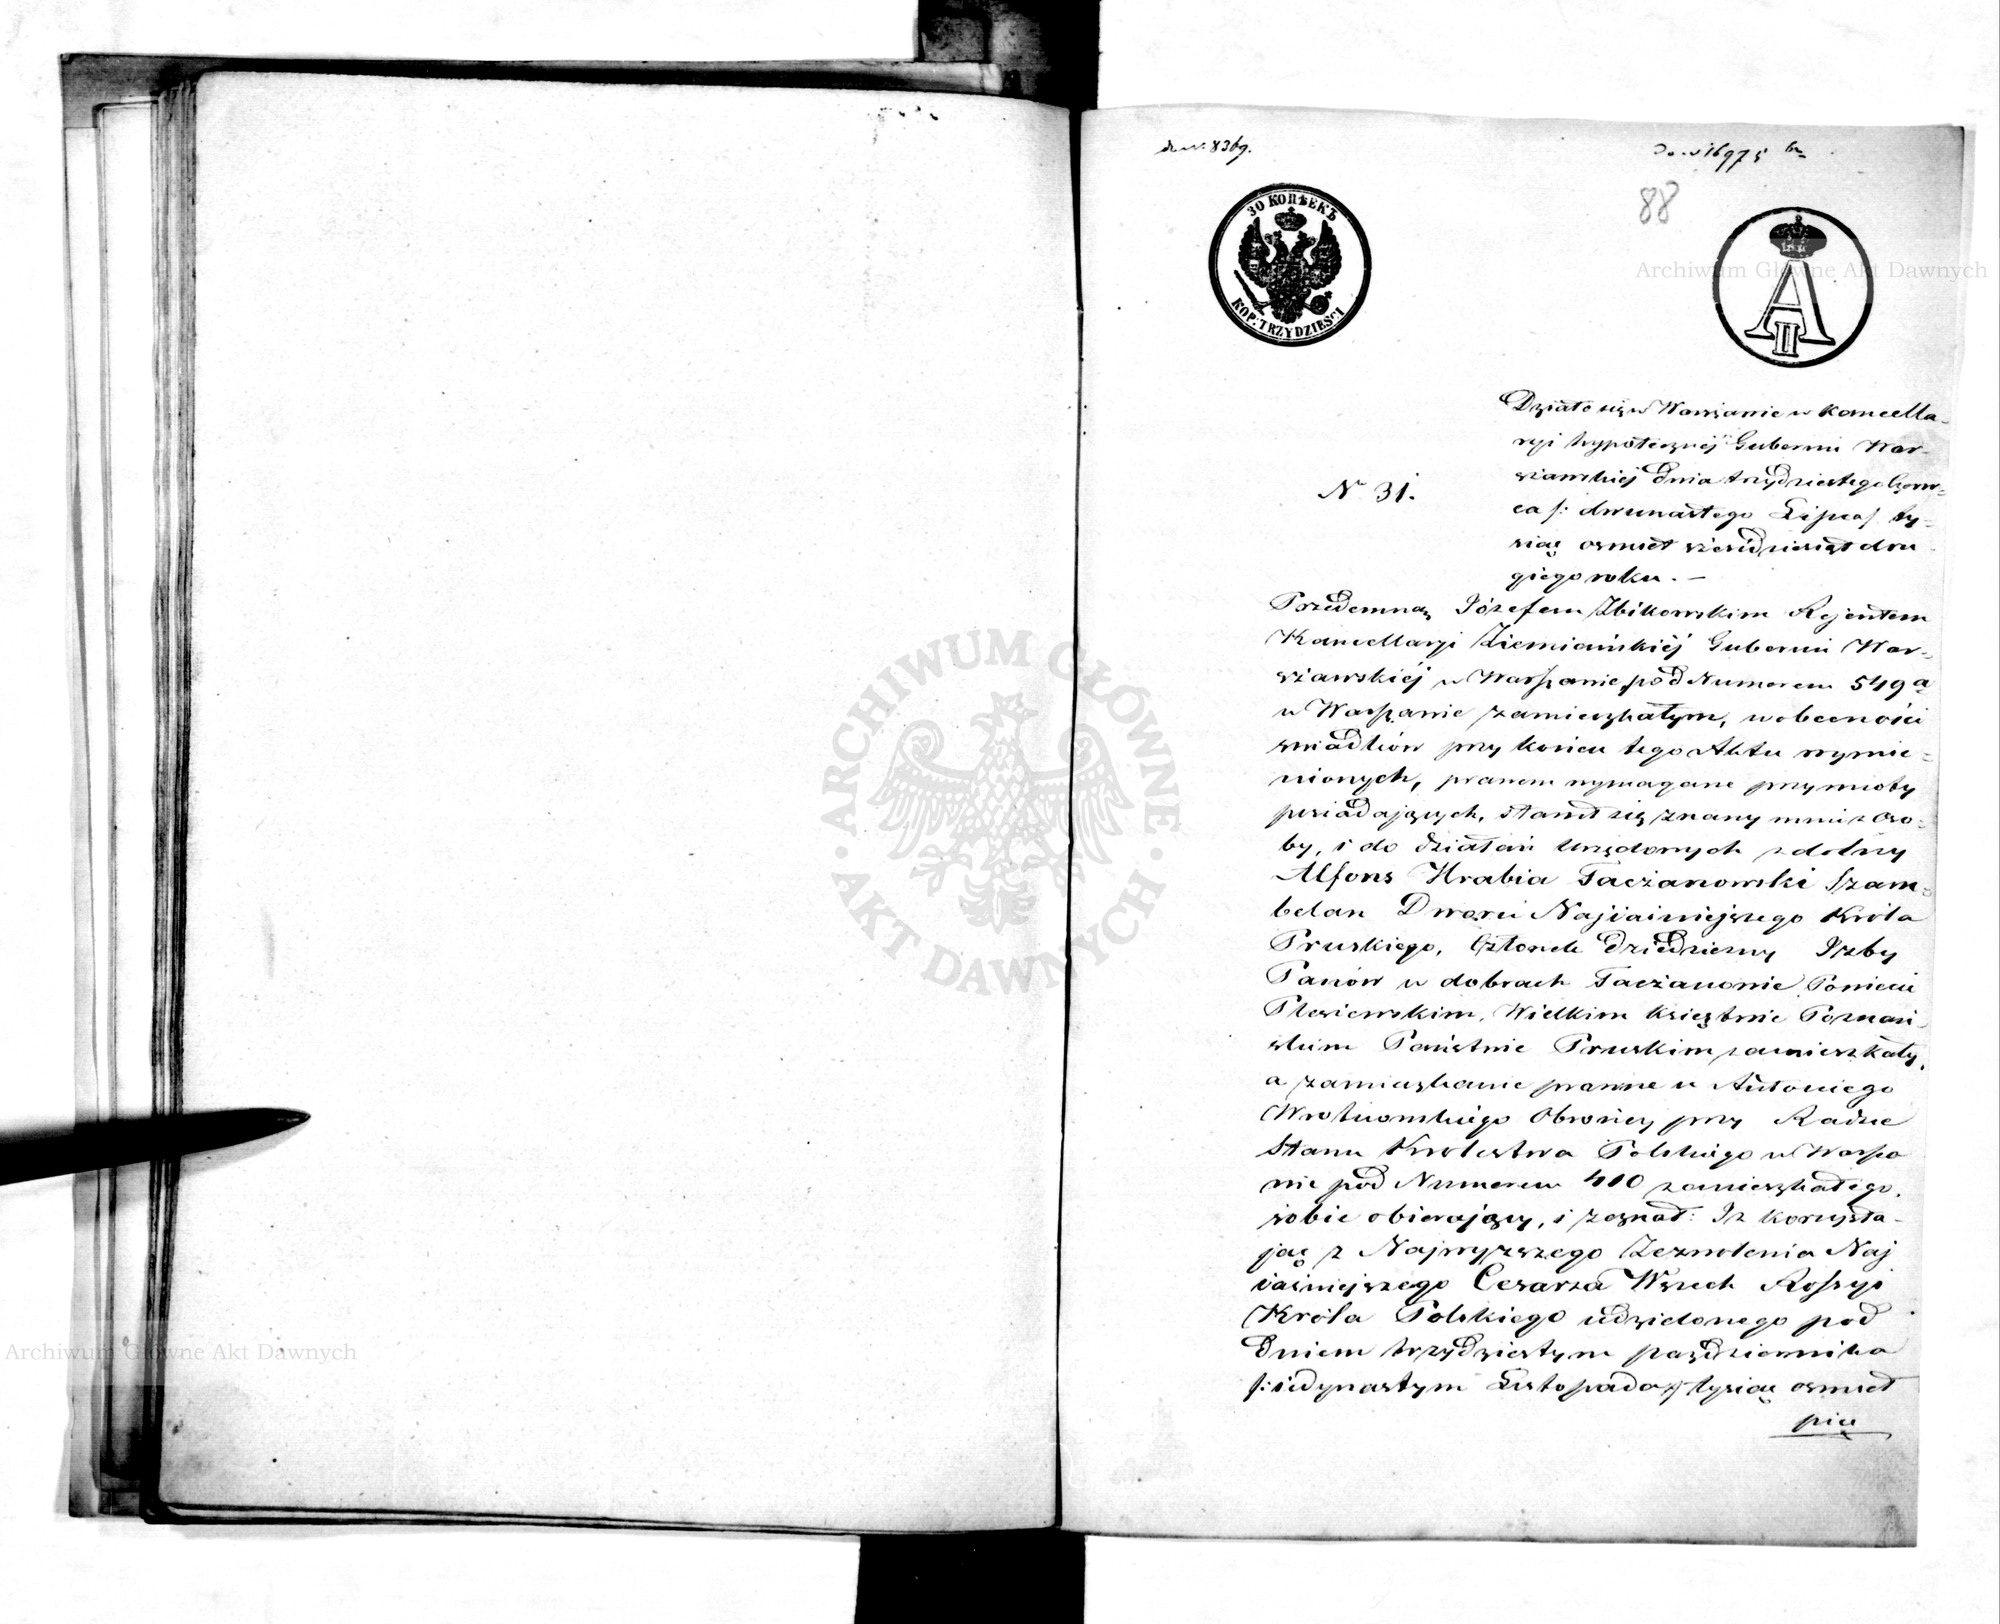 88
30 КОПѢЕКЪ
KOP: TRZYDZIEŚCI
A II
Działo się w Warszawie w kancella-
ryi hypotecznéj Gubernii War-
szawskiéj dnia trzydziestego Czerw-
ca /: dwunastego Lipca / ty-
siąc osmset sześćdziesiąt dru
giego roku. —
N° 31.
Przedemną Józefem Zbikowskim Rejentem
Kancellaryi Ziemiańskiéj Gubernii War-
szawskiéj w Warszawie pod Numerem 549 a
w Warszawie zamieszkałym, w obecności
swiadków przy końcu tego Aktu wymie-
nionych, prawem wymagane przymioty
posiadających, stawił się znany mi z oso-
by, i do działań urzędowych zdolny
Alfons Hrabia Taczanowski Szam-
belan Dworu Najjaśniejszego Króla
Pruskiego, Członek dziedziczny Izby
Panów w dobrach Taczanowie Powiecie
Pleszewskim, Wielkim Księstwie Poznań-
skim Państwie Pruskim zamieszkały,
a zamieszkanie prawne u Antoniego
Wrotnowskiego Obrońcy przy Radzie
Stanu Królestwa Polskiego w Warsza
wie pod Numerem 410 zamieszkałego,
sobie obierający, i zeznał: Iż korzysta-
jąc z Najwyższego Zezwolenia Naj
jaśniejszego Cesarza Wszech Rossyi
Króla Polskiego udzielonego pod
dniem trzydziestym października
/: jedynastym Listopada / tysiąc osmset
pię
ARCHIWUM GŁÓWNE
AKT DAWNYCH
Archiwum Główne Akt Dawnych
Archiwum Główne Akt Dawnych